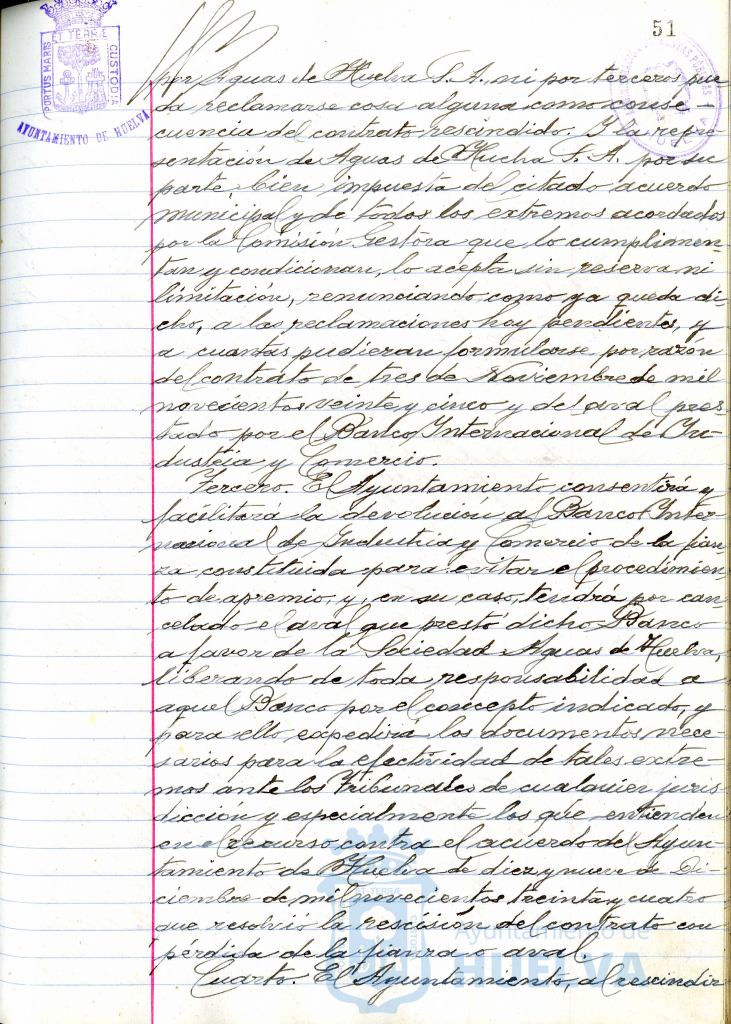 51
PORTUS MARIS ET TERRAE CUSTODIA
AYUNTAMIENTO DE HUELVA
por Aguas de Huelva S.A. ni por terceros pue-
da reclamarse cosa alguna como conse-
cuencia del contrato rescindido. Y la repre-
sentación de Aguas de Huelva S.A. por su
parte, bien impuesta del citado acuerdo
municipal y de todos los extremos acordados
por la Comisión Gestora que lo cumplimen-
tan y condicionan, lo acepta sin reserva ni
limitación, renunciando como ya queda di-
cho, a las reclamaciones hoy pendientes, y
a cuantas pudieran formularse por razón
del contrato de tres de Noviembre de mil
novecientos veinte y cinco y del aval pres-
tado por el Banco Internacional de In-
dustria y Comercio.
Tercero. El Ayuntamiento consentirá y
facilitará la devolución al Banco Inter-
nacional de Industria y Comercio de la fian-
za constituida para evitar el procedimien-
to de apremio, y, en su caso, tendrá por can-
celado el aval que presto dicho Banco
a favor de la Sociedad Aguas de Huelva,
liberando de toda responsabilidad a
aquel Banco por el concepto indicado, y
para ello expedirá los documentos nece-
sarios para la efectividad de tales extre-
mos ante los Tribunales de cualquier juris-
dicción y especialmente los que entienden
en el recurso contra el acuerdo del Ayun-
tamiento de Huelva de diez y nueve de Di-
ciembre de mil novecientos treinta y cuatro
que resolvió la rescisión del contrato con
pérdida de la fianza o aval.
Cuarto. El Ayuntamiento, al rescindir
Ayuntamiento de
HUELVA